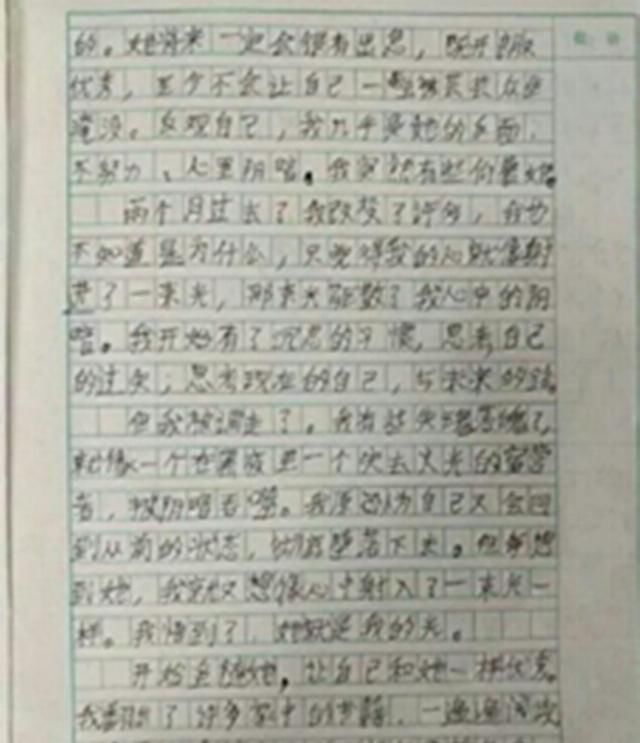 的。她将来一定会很有出息，
优秀，至少不会让自己一
淹没。反观自己，我几乎是她的反面，
不努力、心里阴暗。我突然有些仰慕她。
两个月过去了我改变了许多，我也
不知道是为什么，只觉得我的心就像射
进了一束光，那束光驱散了我心中的阴
暗。我开始有了沉思的习惯，思考自己
的过失；思考现在的自己，与未来的路。
但我被调走了。我有些失魂落魄了，
就像一个在黑夜里一个失去火光的宿营
者，被阴暗吞噬。我原以为自己又会回
到从前的状态，彻底堕落下去。但每想
到她，我就又想像心中射入了一束光一
样。我悟到了，她就是我的光。
开始追随她，让自己和她一样优秀。
我翻阅了许多家中的书籍，一遍遍阅